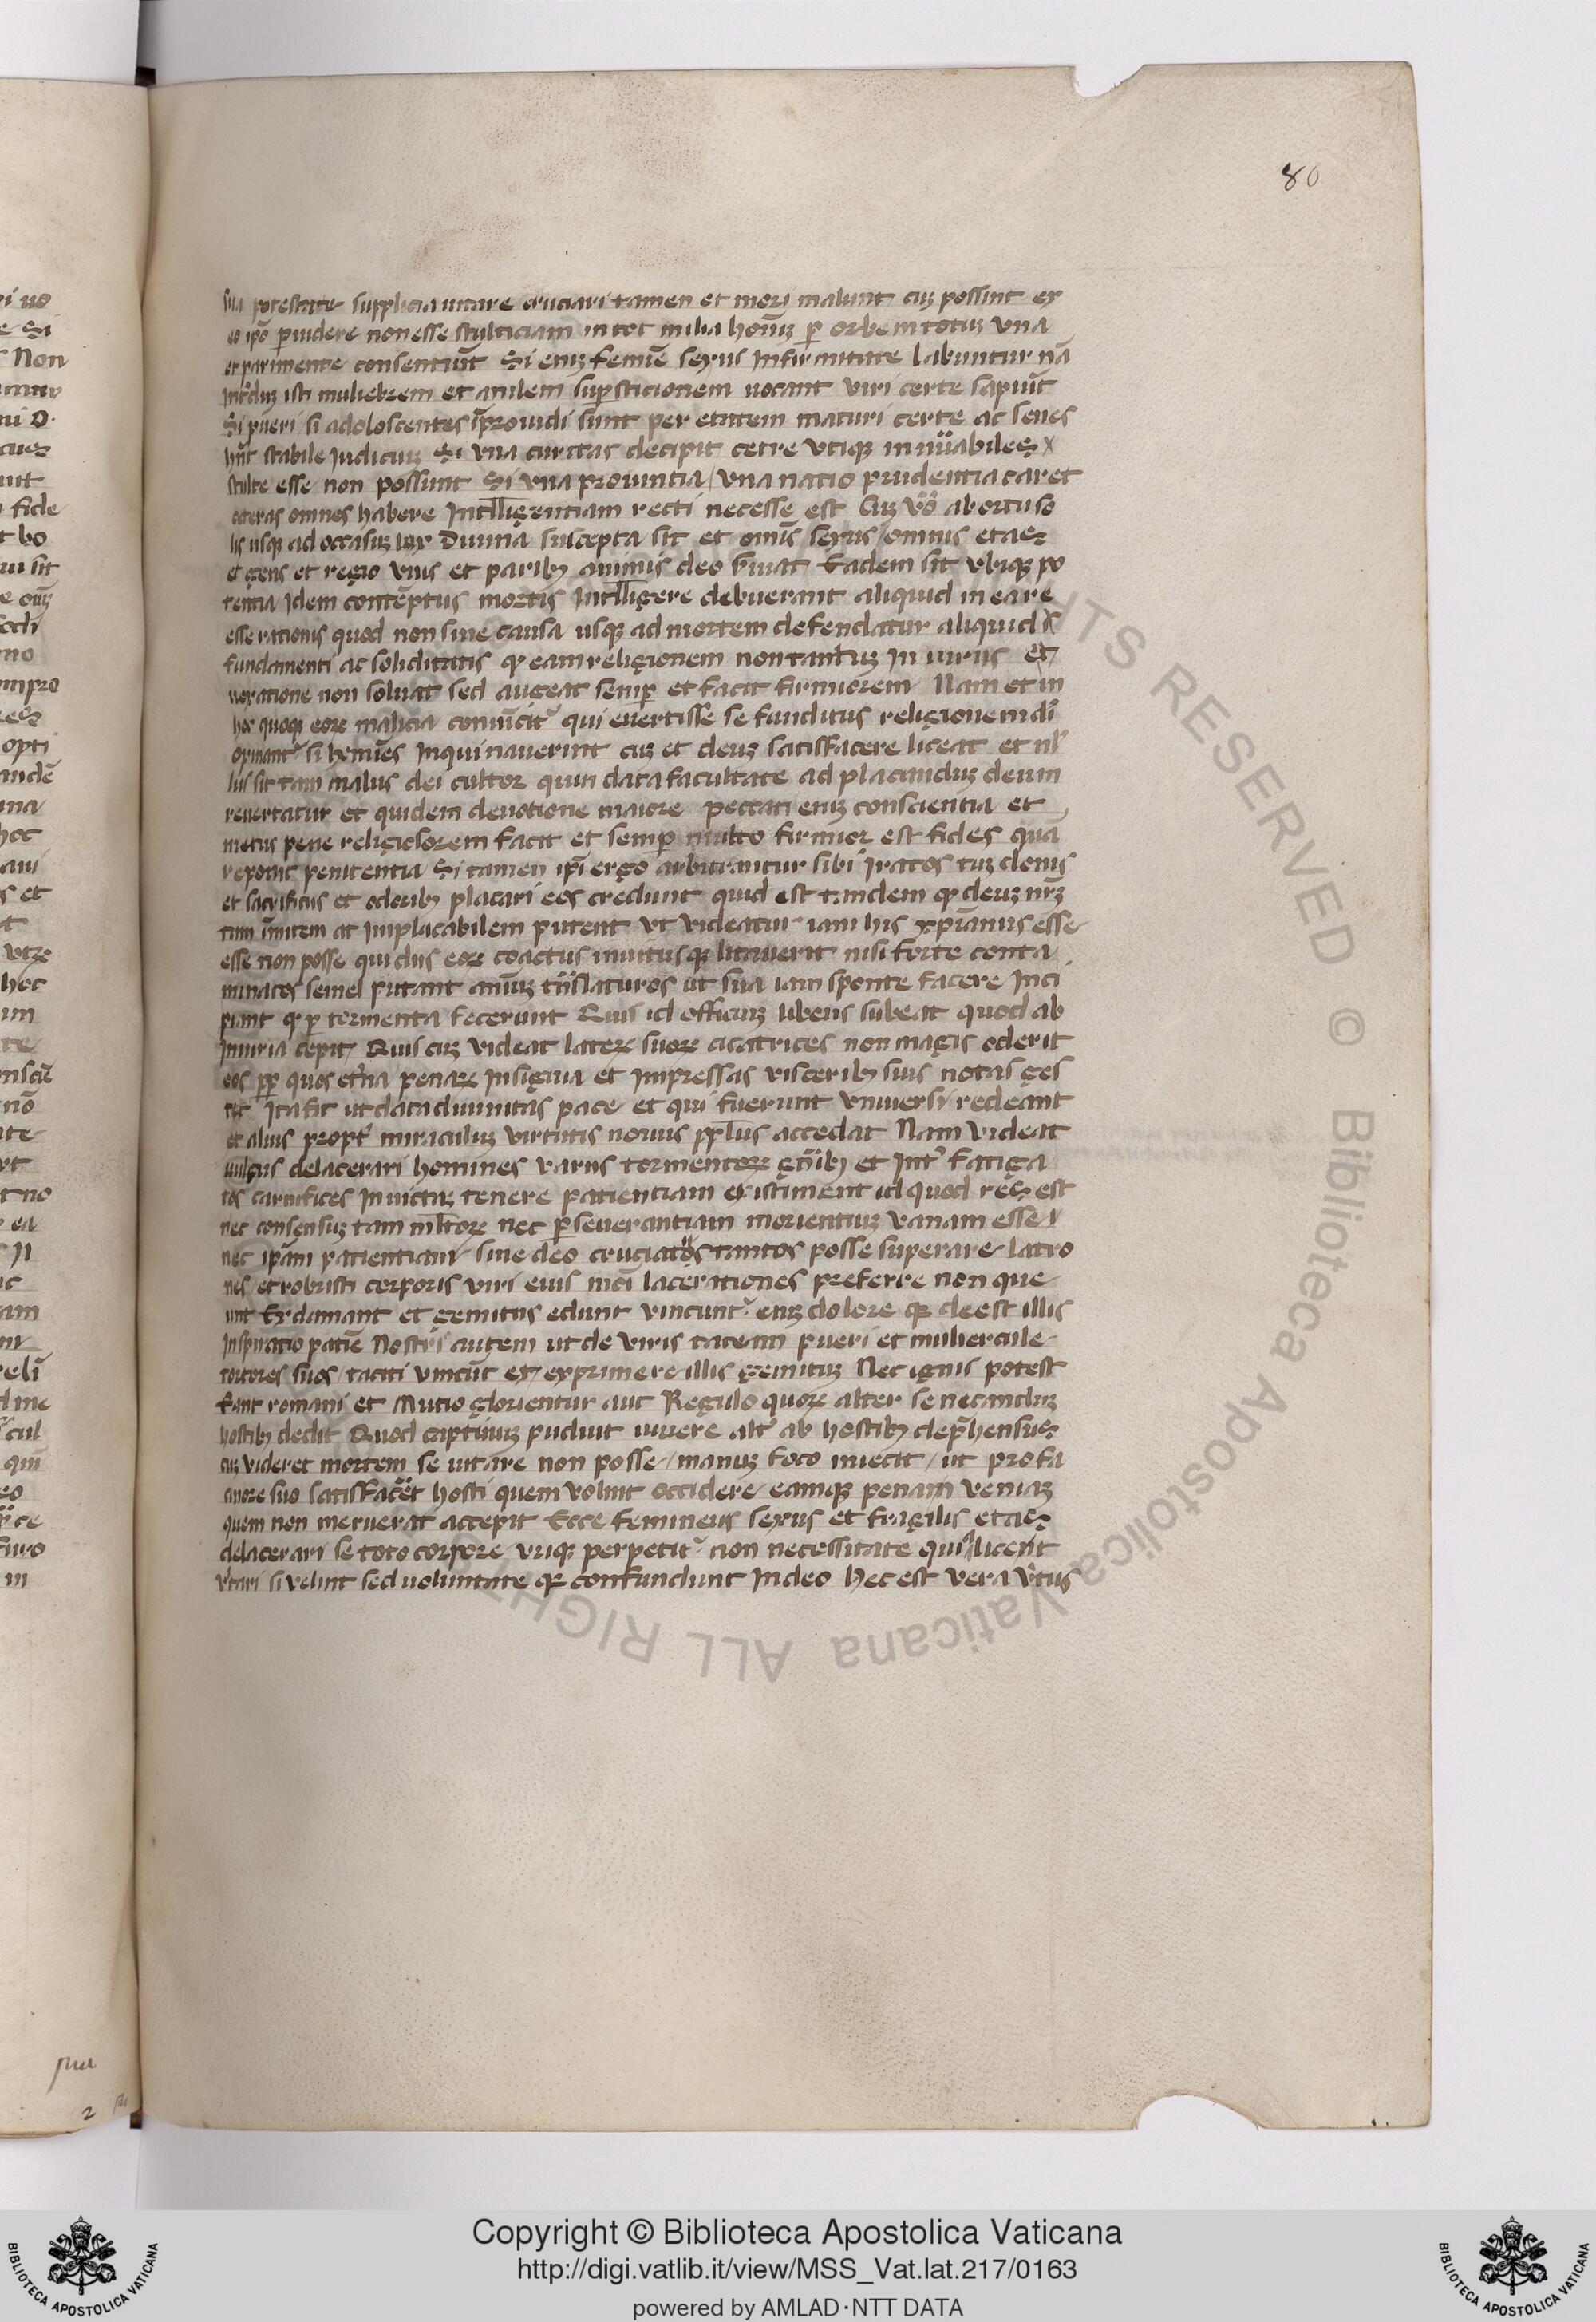 80
sua potestate supplicia vitare cruciari tamen et mori malunt cuʒ possint ex
eo ip̄o p̱uidere non esse stulticiam in tot milia hoīnuʒ ꝑ orbem totuʒ vna
et pari mente consentiūt Si eniʒ femīe sexus infirmitate labuntur nā
interduʒ isti muliebrem et anilem suꝑsticionem uocant viri certe sapiūt
Si pueri si adoloscentes īprouidi sunt per etatem maturi certe ac senes
hn̄t stabile Judiciuʒ Si vna ciuitas decipit cetre vtiqꝫ innūabiles
stulte esse non possunt Si vna prouintia / vna natio prudentia caret
ceteras omnes habere Intll̄igentiam recti necesse est Cuʒ v̊o ab ortu so
lis usqꝫ ad occasuʒ lex Diuina suscepta sit et omīs sexus / omnis etas
et gens et regio vnis et paribꝫ animis deo s̄uiat Eadem sit vbiqꝫ pa
tentia Idem contēptus mortis Intll̄igere debuerant aliquid in ea re
esse rationis quod non sine causa usqꝫ ad mortem defendatur aliquid
fundamenti ac soliditatis ꝙ eam religionem non tantuʒ In iuriis et
uexatione non soluat sed augeat semꝑ et facit firmiorem Nam et in
hoc quoqꝫ eoꝝ malicia conuīcit᷑ qui euertisse se funditus religionem dī
opinant᷑ si homīes Inquinauerint cuʒ et deuʒ satisfacere liceat et nl̄
lus sit tam malus dei cultor quin data facultate ad placanduʒ deum
reuertatur et quidem deuotione maiore peccati eniʒ conscientia et
metus pene religiosorem facit et semꝑ multo firmior est fides quā
reponit penitentia Si tamen ip̄i ergo arbitrantur sibi Iratos tuʒ donis
et sacrificiis et odoribꝫ placari eos credunt quid est tandem ꝙ deuʒ nr̄ʒ
tam īmitem at Implacabilem putent vt videatur iam his xp̄ianus esse
esse non posse qui diis eoꝝ coactus inuitusqꝫ litauerit nisi forte conta
minatos semel putant aīmuʒ tn̄slaturos ut sua iam sponte facere Inci
piant ꝙ ꝑ tormenta fecerunt Quis id officiuʒ libens subeat quod ab
Iniuria cepit Quis cuʒ videat lateꝝ suoꝝ cicatrices non magis oderit
eos pp̄ quos et̄na penaꝝ Insignia et Impressas visceribꝫ suis notas ges
tet Ita fit ut data diuinitas pace et qui fuerunt vniuersi redeant
et alius propt᷑ miraculuʒ virtutis nouus pp̄lus accedat Nam videat
uulgus delacerari homines variis tormentoꝝ gn̄ibꝫ et Int᷑ fatiga
tos carnifices Inuictaʒ tenere patientiam existiment id quod res est
nec consensuʒ tam ml̄toꝝ nec ꝑseuerantiam morientiuʒ vanam esse
nec ip̄am patientiam sine deo cruciatos tantos posse superare latro
nes et robusti corporis viri eius mōi lacerationes preferre non que
unt Exclamant et gemitus edunt vincunt᷑ eniʒ dolore qꝫ deest illis
Inspiratio patīe Nostri autem ut de viris taceam pueri et muliercule
tortores suos taciti vincūt et exprimere illis gemituʒ Nec ignis potest
Eant romani et Mutio glorientur aut Regulo quoꝝ alter se necanduʒ
hostibꝫ dedit Quod captiuuʒ puduit uiuere alt᷑ ab hostibꝫ dep̄hensus
cuʒ videret mortem se uitare non posse / manuʒ foco iniecit / ut pro fa
cinore suo satisfac̄et hosti quem voluit occidere eamqꝫ penam veniaʒ
quem non meruerat accepit Ecce femineus sexus et fragilis etas
delacerari se toto corpore vriqꝫ perpetit᷑ non necessitate qui licent
vitari si velint sed uoluntate qꝫ confundunt In deo Hec est vera v̄tus
sua
2
Copyright © Biblioteca Apostolica Vaticana
http://digi.vatlib.it/view/MSS_Vat.lat.217/0163
powered by AMLAD·NTT DATA